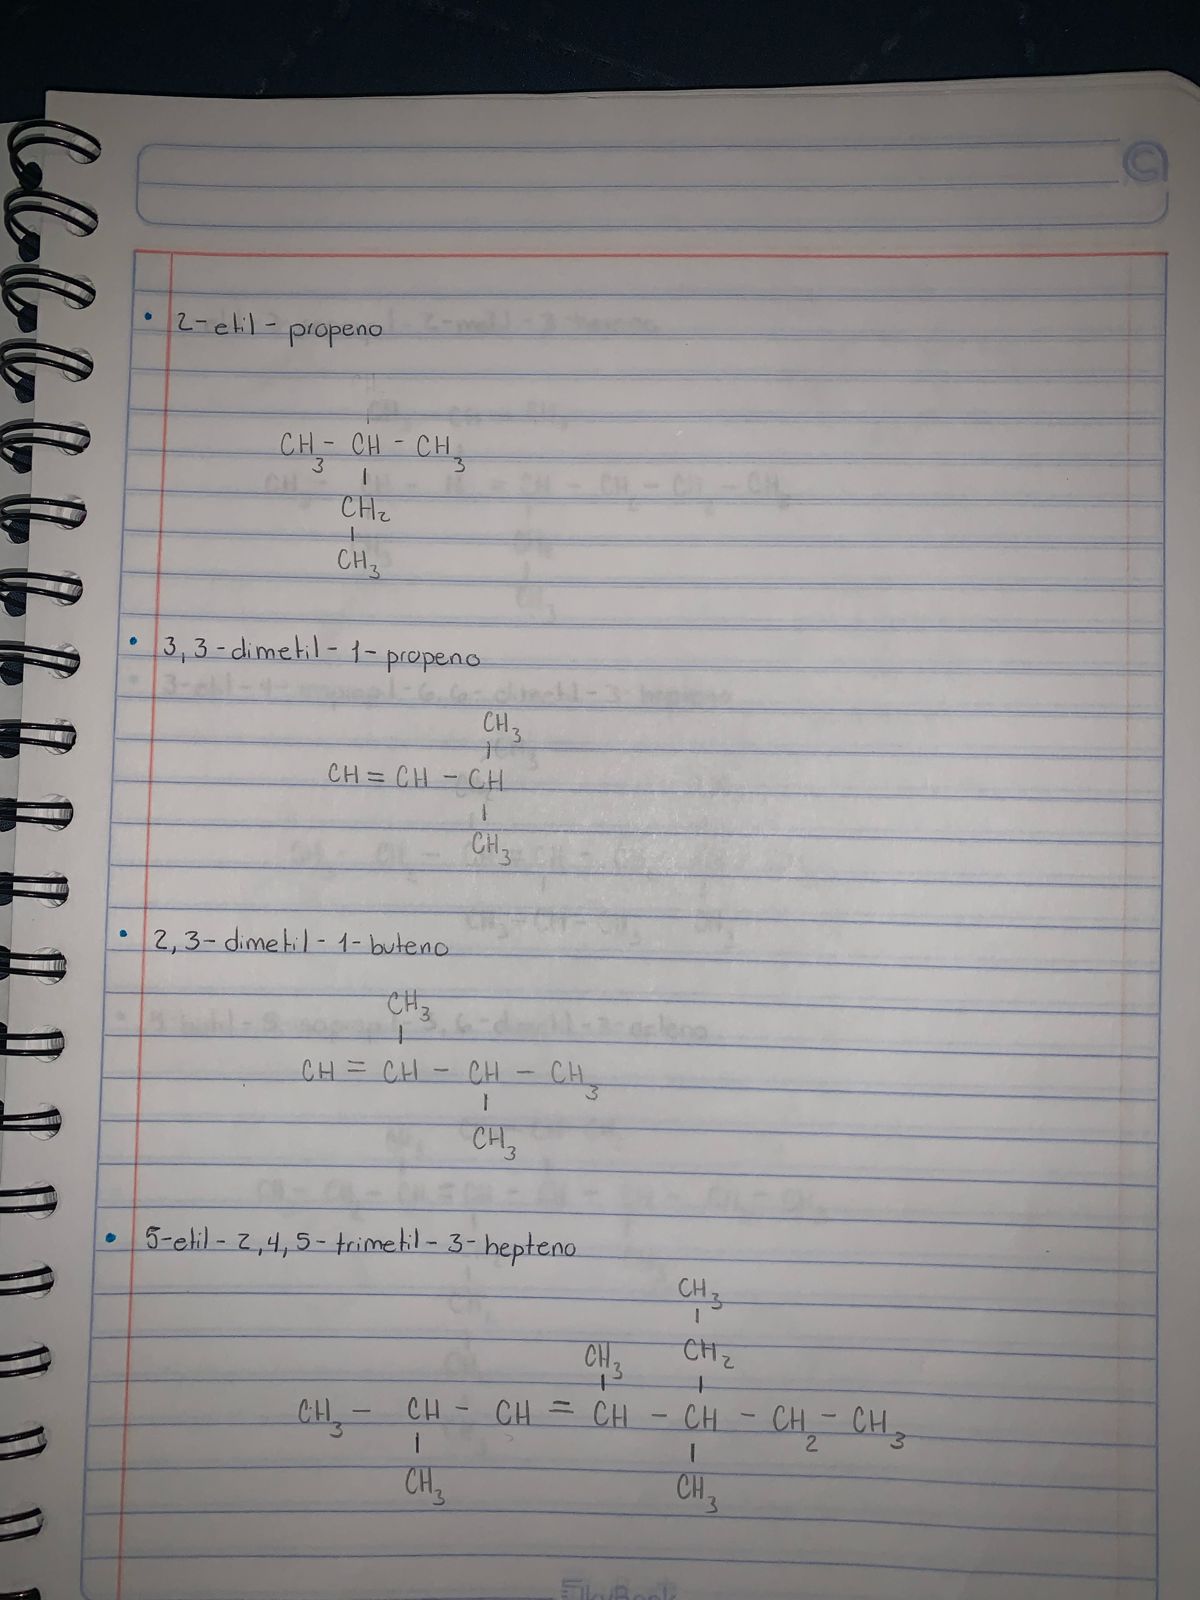 • 2-etil-propeno
CH3 - CH - CH3
|
CH2
|
CH3
• 3,3-dimetil-1-propeno
CH3
|
CH = CH - CH
|
CH3
• 2,3-dimetil-1-buteno
CH3
|
CH = CH - CH - CH3
|
CH3
• 5-etil-2,4,5-trimetil-3-hepteno
CH3
|
CH3 CH2
| |
CH3 - CH - CH = CH - CH - CH2 - CH3
| |
CH3 CH3